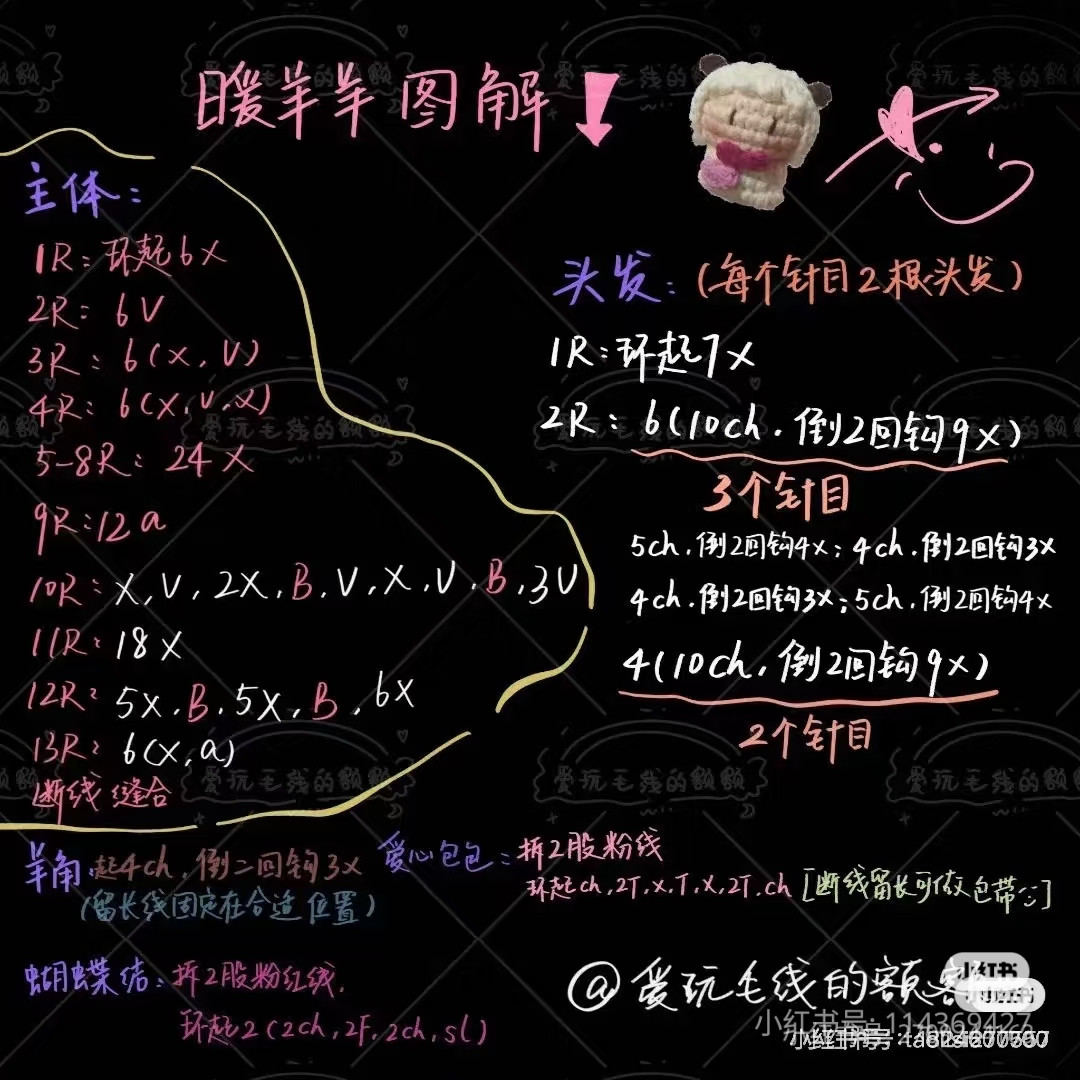 暖羊羊图解
主体:
1R:环起6X
2R:6V
3R:6(X,V)
4R:6(X,V,X)
5-8R:24X
9R:12a
10R:X,V,2X,B,V,X,V,B,3V
11R:18X
12R:5X,B,5X,B,6X
13R:6(X,a)
断线缝合
头发:(每个针目2根头发)
1R:环起7X
2R:6(10ch,倒2回钩9X)
3个针目
5ch,倒2回钩4X;4ch,倒2回钩3X
4ch,倒2回钩3X;5ch,倒2回钩4X
4(10ch,倒2回钩9X)
2个针目
羊角:起4ch,倒二回钩3X
(留长线固定在合适位置)
爱心包包:拆2股粉线
环起ch,2T,X,T,X,2T,ch[断线留长可做包带]
蝴蝶结:拆2股粉红线.
环起2(2ch,2F,2ch,sl)
@爱玩毛线的额
小红书
小红书号:114369427
小红书号:
爱玩毛线的额额
爱玩毛线的额额
爱玩毛线的额额
爱玩毛线的额额
爱玩毛线的额额
爱玩毛线的额额